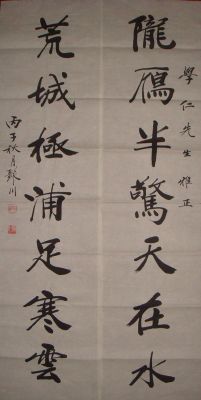 學仁先生雅正
隴鴈半驚天在水
荒城極浦足寒雲
丙子秋月
川